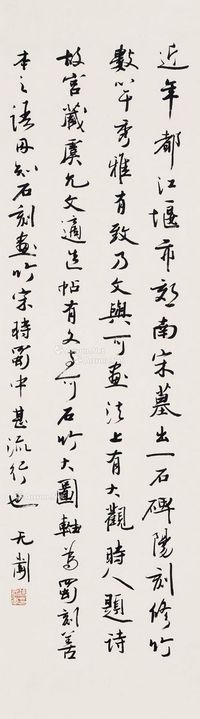 近年都江堰市郊南宋墓出一石碑陽刻修竹
數竿秀雅有致乃文與可畫法上有大觀時人題詩
故宮藏虞允文適造帖有文與可石竹大圖軸為蜀刻善
本之語因知石刻畫竹宋時蜀中甚流行也 无劇